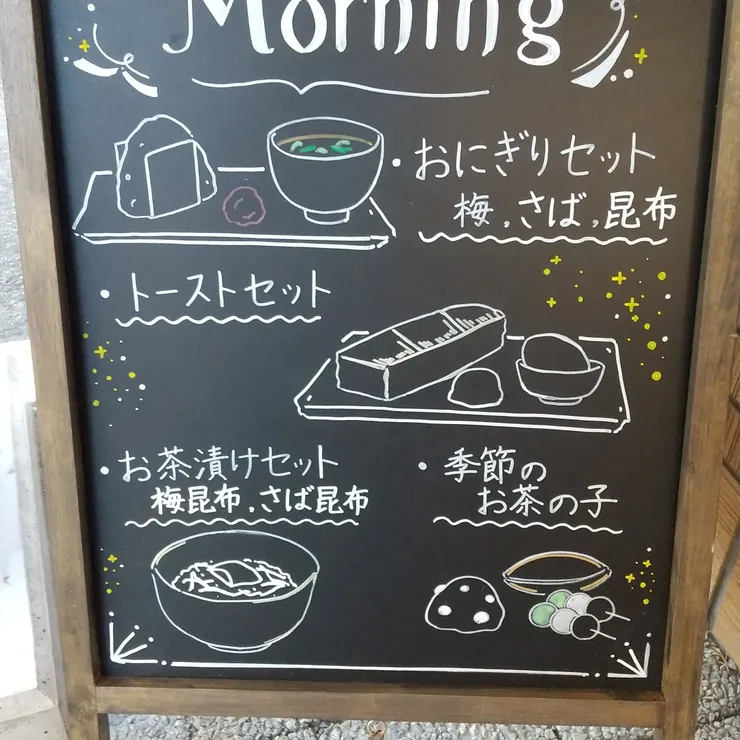 Morning
・おにぎりセット
梅,さば,昆布
・トーストセット
・お茶漬けセット
梅昆布,さば昆布
・季節の
お茶の子